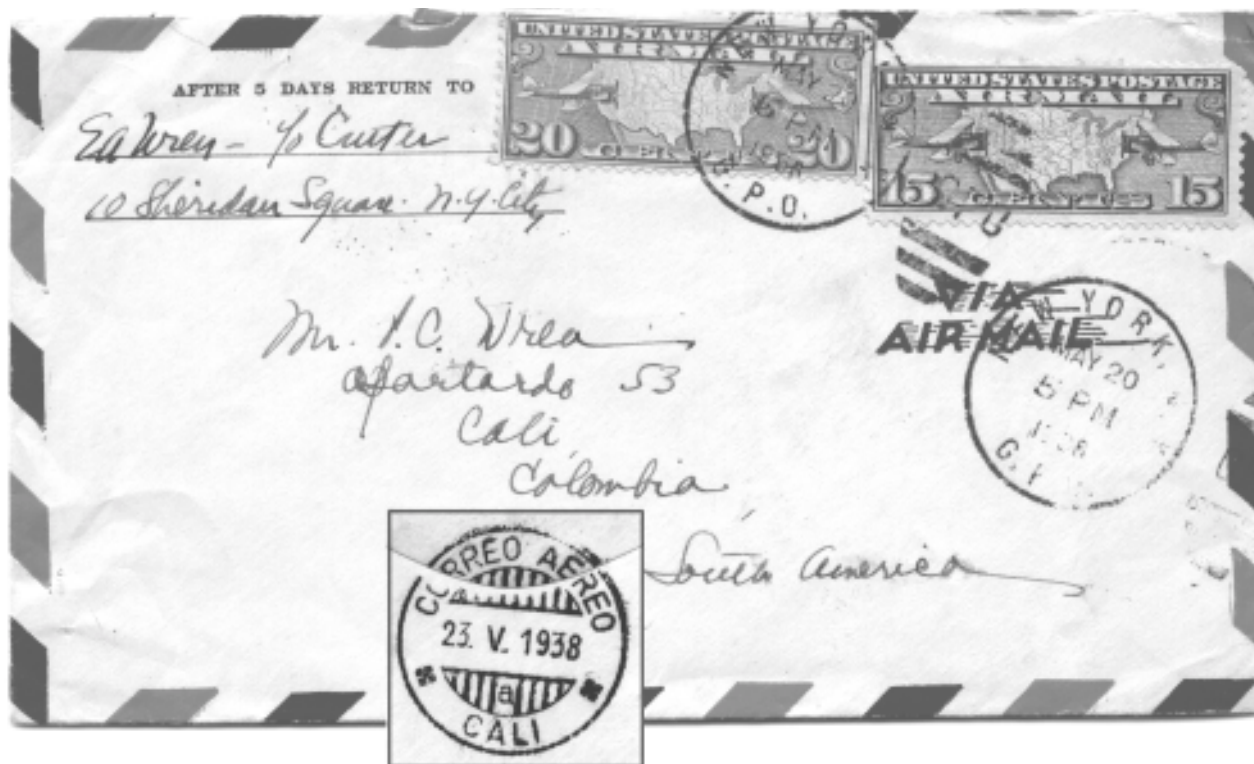 AFTER 5 DAYS RETURN TO
Ed Wren - c/o Cutter
10 Sheridan Square. N.Y. City
UNITED STATES POSTAGE
AIR MAIL
20 CENTS 20
UNITED STATES POSTAGE
AIR MAIL
15 CENTS 15
G.P.O.
VIA
AIR MAIL
NEW YORK,
MAY 20
5 PM
1938
G.P.
Mr. P.C. Wren
Apartardo 53
Cali
Colombia
South America
CORREO AEREO
23. V. 1938
a
CALI